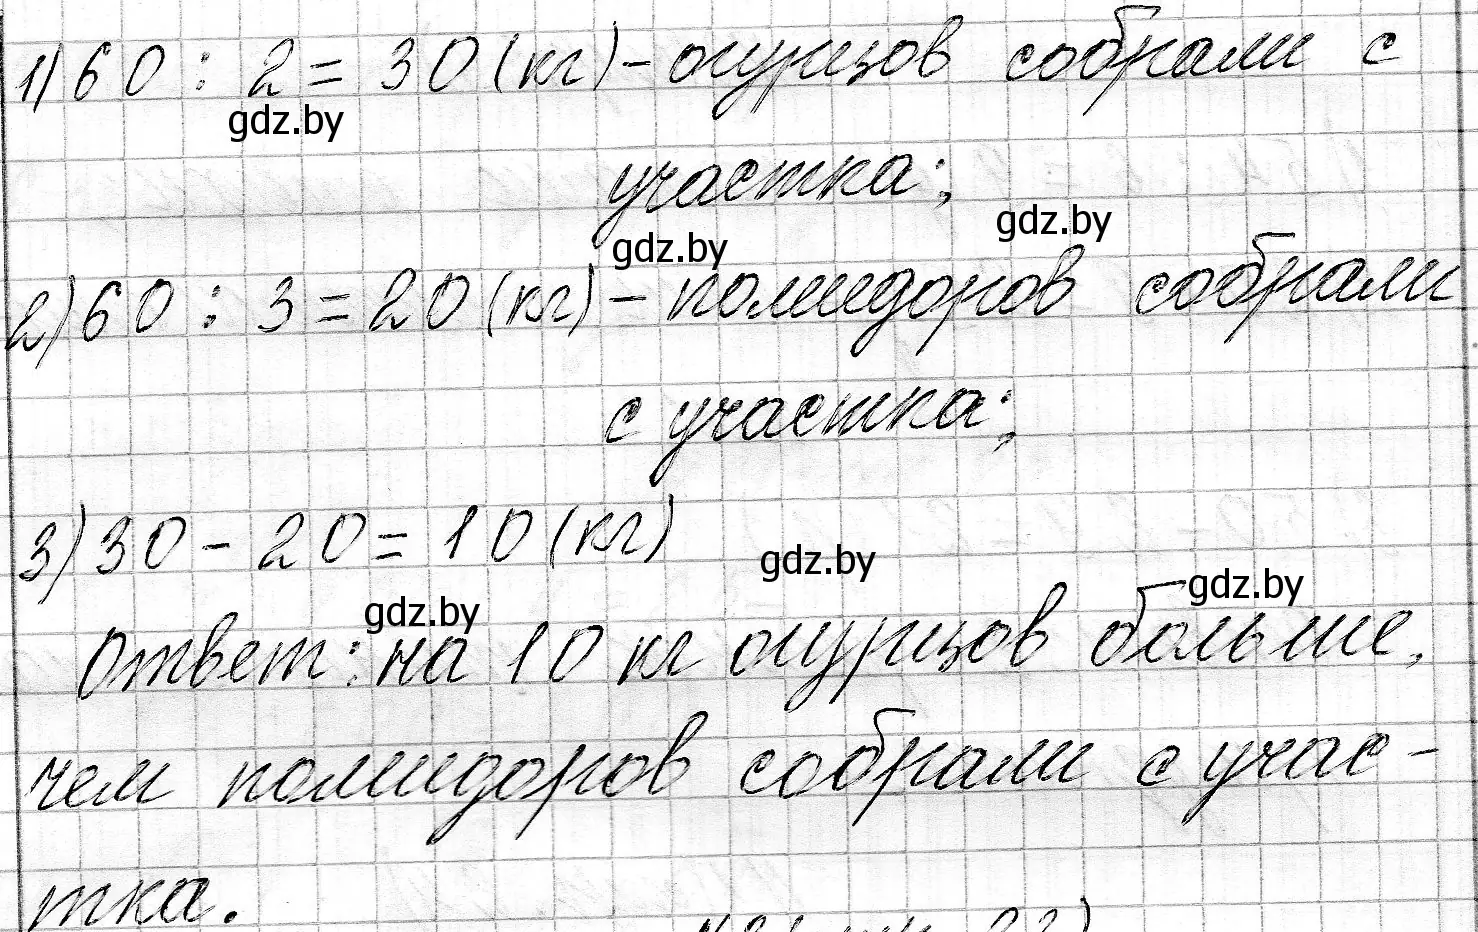 1) 60 : 2 = 30 (кг) - огурцов собрали с
gdz.by
участка;
gdz.by
gdz.by
2) 60 : 3 = 20 (кг) - помидоров собрали
с участка;
3) 30 - 20 = 10 (кг)
gdz.by
gdz.by
gdz.by
Ответ: на 10 кг огурцов больше,
чем помидоров собрали с учас-
тка.